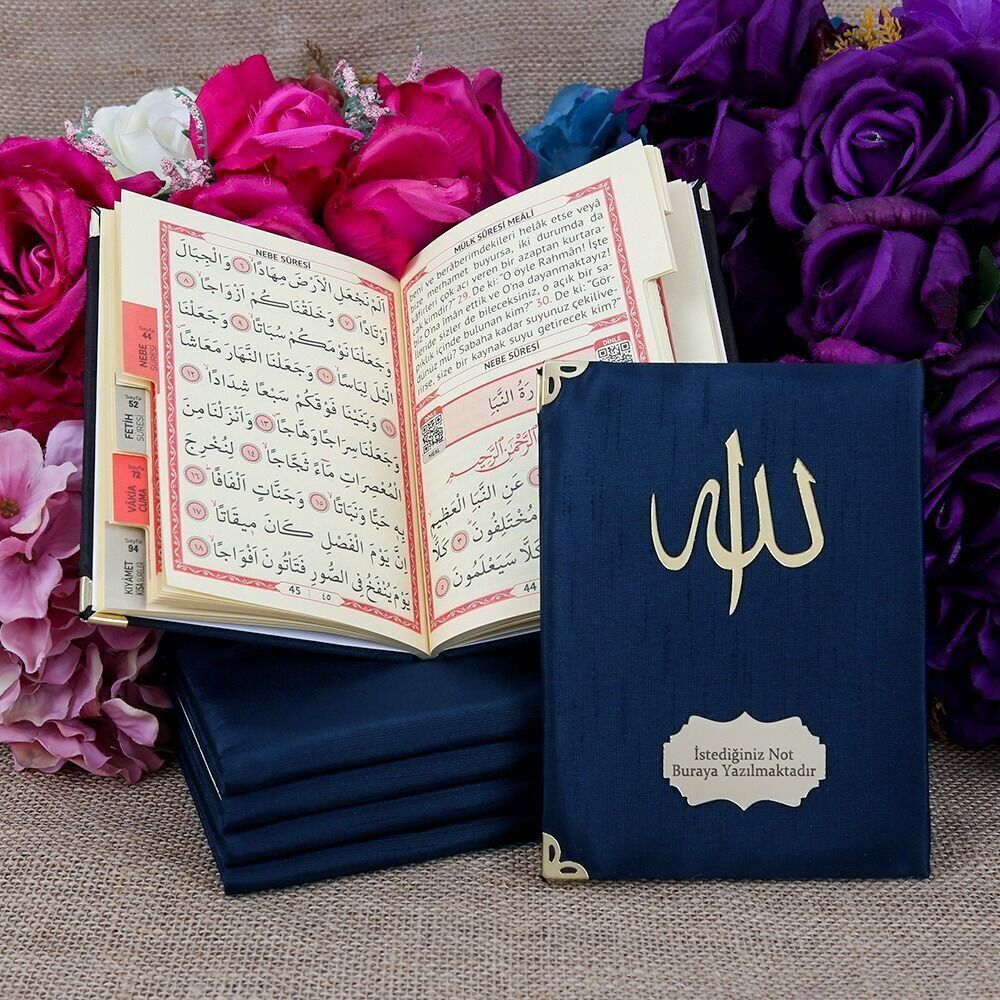 NEBE SÛRESİ
اَلَمْ نَجْعَلِ الْاَرْضَ مِهَادًاۙ ﴿٦﴾ وَالْجِبَالَ
اَوْتَادًاۙ ﴿٧﴾ وَخَلَقْنَاكُمْ اَزْوَاجًاۙ ﴿٨﴾
وَجَعَلْنَا نَوْمَكُمْ سُبَاتًاۙ ﴿٩﴾ وَجَعَلْنَا
الَّيْلَ لِبَاسًاۙ ﴿١٠﴾ وَجَعَلْنَا النَّهَارَ مَعَاشًاۖ
﴿١١﴾ وَبَنَيْنَا فَوْقَكُمْ سَبْعًا شِدَادًاۙ ﴿١٢﴾
وَجَعَلْنَا سِرَاجًا وَهَّاجًاۖ ﴿١٣﴾ وَاَنْزَلْنَا مِنَ
الْمُعْصِرَاتِ مَٓاءً ثَجَّاجًاۙ ﴿١٤﴾ لِنُخْرِجَ
بِهٖ حَبًّا وَنَبَاتًاۙ ﴿١٥﴾ وَجَنَّاتٍ اَلْفَافًاۜ ﴿١٦﴾
اِنَّ يَوْمَ الْفَصْلِ كَانَ مِيقَاتًاۙ ﴿١٧﴾
يَوْمَ يُنْفَخُ فِي الصُّورِ فَتَأْتُونَ اَفْوَاجًاۙ ﴿١٨﴾
45 ٤٥
Sayfa
44
NEBE
SÛRESİ
Sayfa
52
FETİH
SÛRESİ
Sayfa
72
VÂKİA
CUMA
Sayfa
94
KIYÂMET
KISA SÛRELER
MÜLK SÛRESİ MEÂLİ
beni ve berâberimdekileri helâk etse veyâ
bize merhamet buyursa, iki durumda da
kâfirleri çok acı veren bir azaptan kurtara-
cak kimdir?" 29. De ki: "O öyle Rahmân! İşte
biz O'na îmân ettik ve O'na dayanmaktayız!
İleride sizler de bileceksiniz, o açık bir sa-
pıklık içinde bulunan kim?" 30. De ki: "Gör-
dünüz mü? Sabaha kadar suyunuz çekiliver-
irse, size bir kaynak suyu getirecek kim?"
NEBE SÛRESİ
DİNLE
رَةُ النَّبَأِ
DİNLE
MEAL
الرَّحْمٰنِ الرَّحِيمِ
عَنِ النَّبَأِ الْعَظِيمِۙ
مُخْتَلِفُونَۜ ﴿٣﴾ كَلَّا
كَلَّا سَيَعْلَمُونَ
44
الله
İstediğiniz Not
Buraya Yazılmaktadır